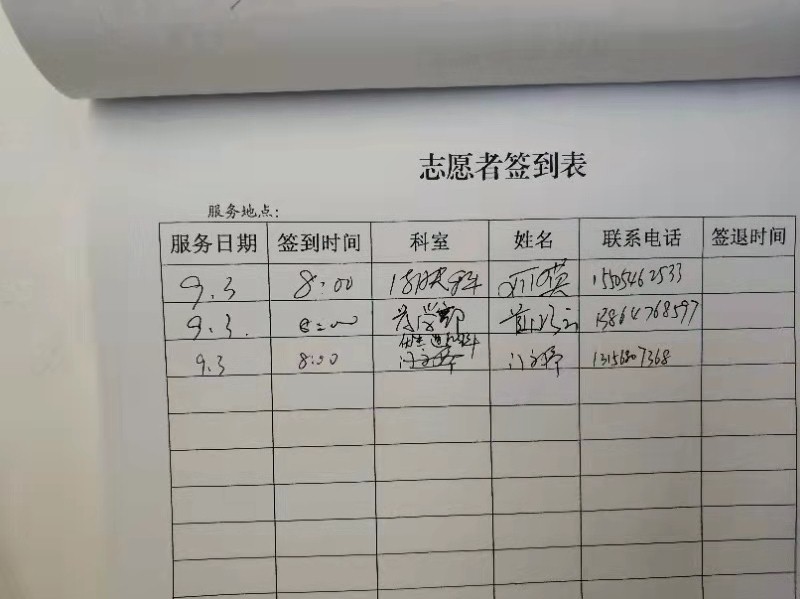 志愿者签到表
服务地点:
服务日期 签到时间 科室 姓名 联系电话 签退时间
9.3 8:00 1505462533
9.3. 8:00 药学部 13864768597
9.3 8:00 门文婷 13156807368